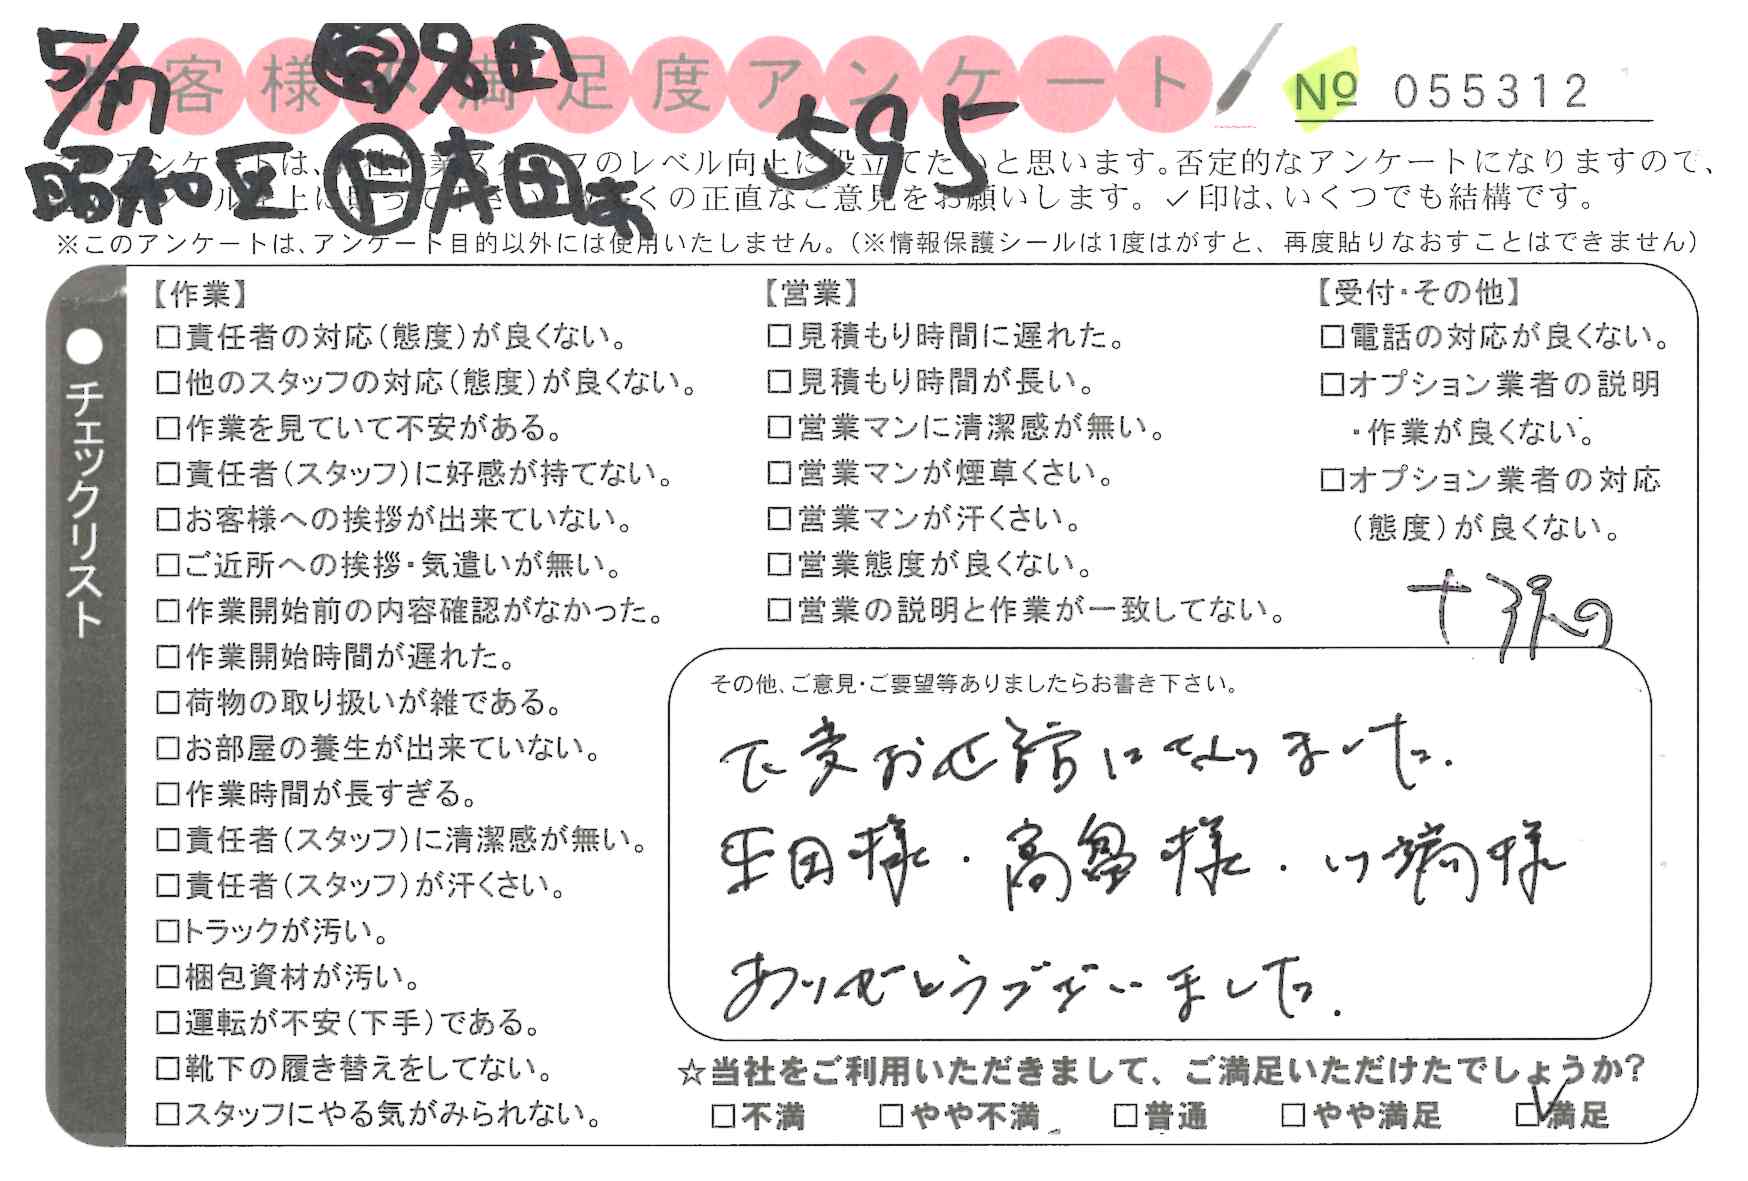 5/17 営 久田
お客様不満足度アンケート
№ 055312
昭和区 ド 本田 595
のレベル向上に役立てたいと思います。否定的なアンケートになりますので、
くの正直なご意見をお願いします。✓印は、いくつでも結構です。
※このアンケートは、アンケート目的以外には使用いたしません。（※情報保護シールは1度はがすと、再度貼りなおすことはできません）
●チェックリスト
【作業】
□責任者の対応（態度）が良くない。
□他のスタッフの対応（態度）が良くない。
□作業を見ていて不安がある。
□責任者（スタッフ）に好感が持てない。
□お客様への挨拶が出来ていない。
□ご近所への挨拶・気遣いが無い。
□作業開始前の内容確認がなかった。
□作業開始時間が遅れた。
□荷物の取り扱いが雑である。
□お部屋の養生が出来ていない。
□作業時間が長すぎる。
□責任者（スタッフ）に清潔感が無い。
□責任者（スタッフ）が汗くさい。
□トラックが汚い。
□梱包資材が汚い。
□運転が不安（下手）である。
□靴下の履き替えをしてない。
□スタッフにやる気がみられない。
【営業】
□見積もり時間に遅れた。
□見積もり時間が長い。
□営業マンに清潔感が無い。
□営業マンが煙草くさい。
□営業マンが汗くさい。
□営業態度が良くない。
□営業の説明と作業が一致してない。
【受付・その他】
□電話の対応が良くない。
□オプション業者の説明
・作業が良くない。
□オプション業者の対応
（態度）が良くない。
その他、ご意見・ご要望等ありましたらお書き下さい。
大変お世話になりました。
本田様・高畠様・様
ありがとうございました。
☆当社をご利用いただきまして、ご満足いただけたでしょうか?
□不満 □やや不満 □普通 □やや満足 ☑満足